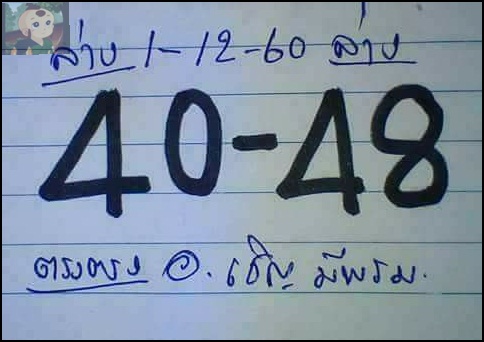 ล่าง 1-12-60 ล่าง
40-48
ตรงตรง อ. เชิญ มีพรม.